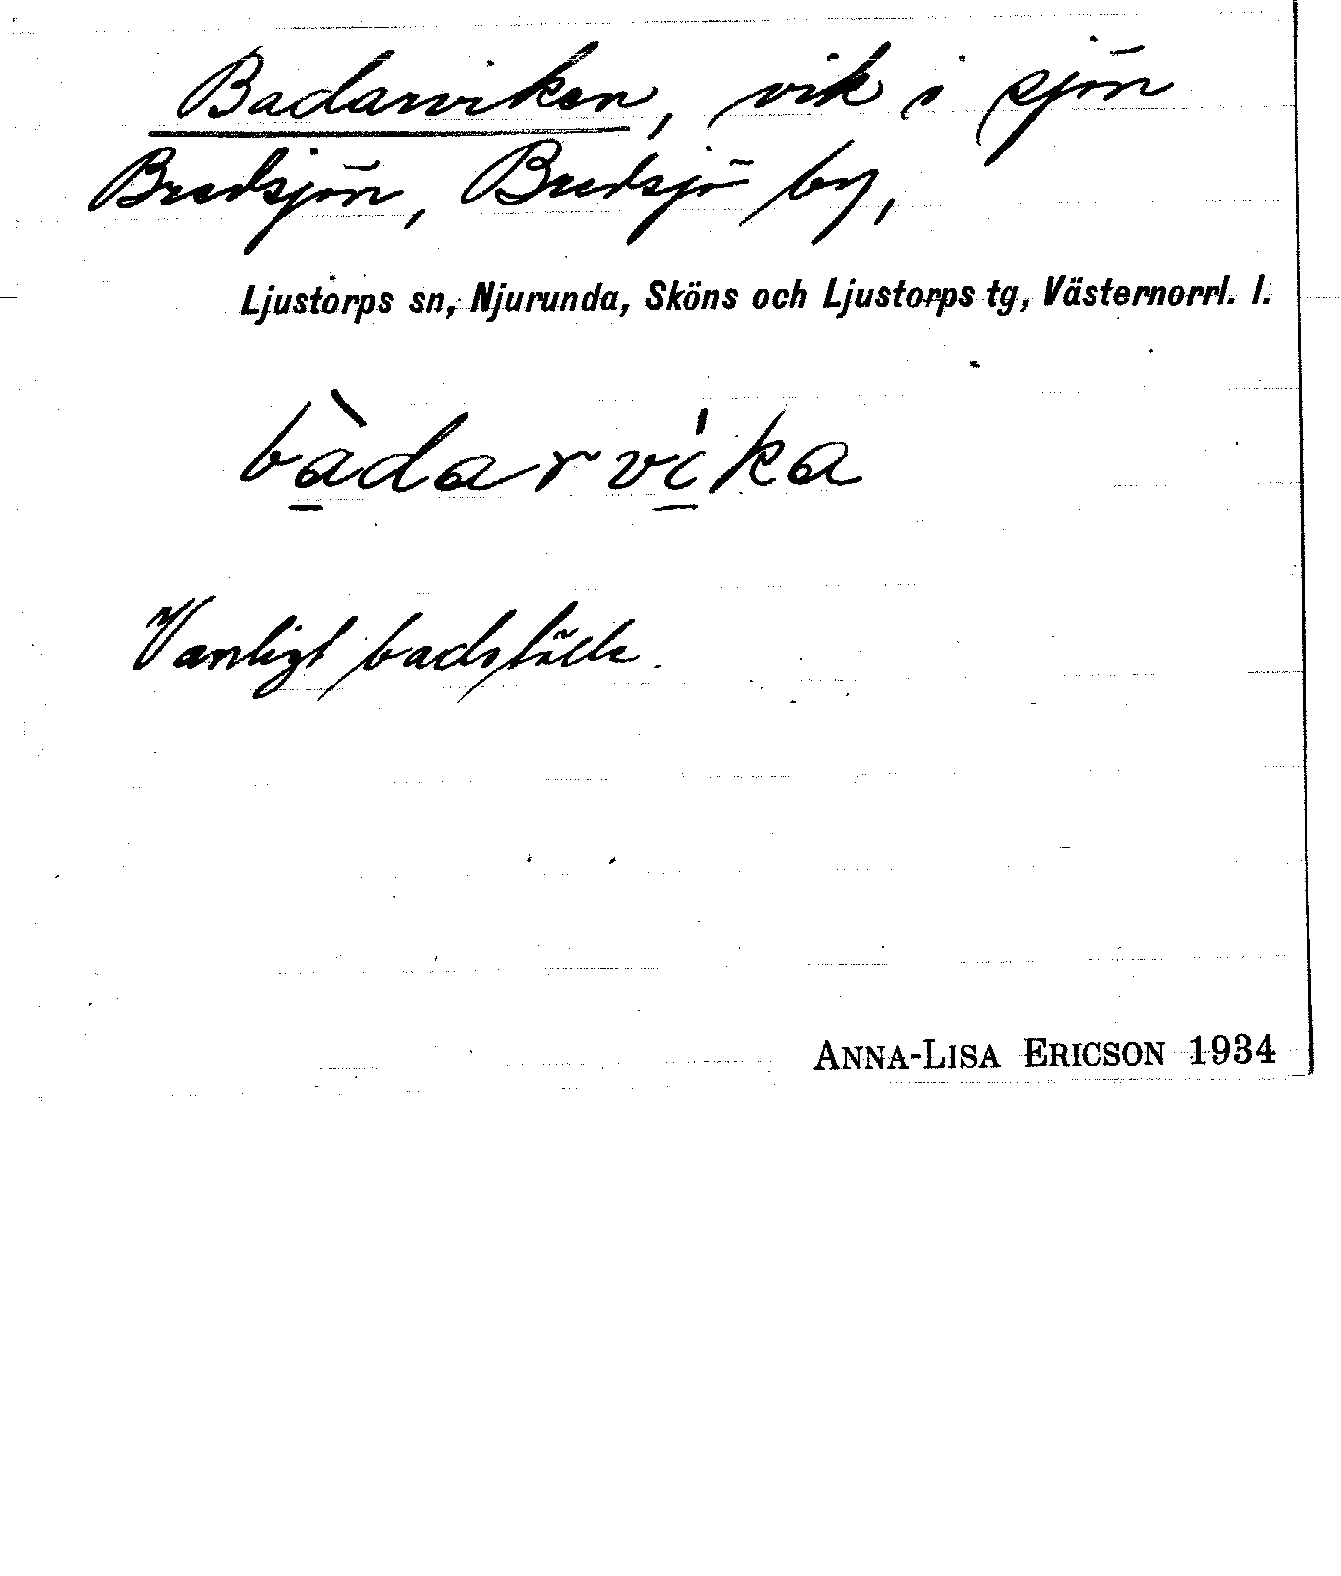 Badarviken, vik i sjön
Bredsjön, Bredsjö by,
Ljustorps sn, Njurunda, Sköns och Ljustorps tg, Västernorrl. l.
bàdarvíka
Vanligt badställe.
ANNA-LISA ERICSON 1934